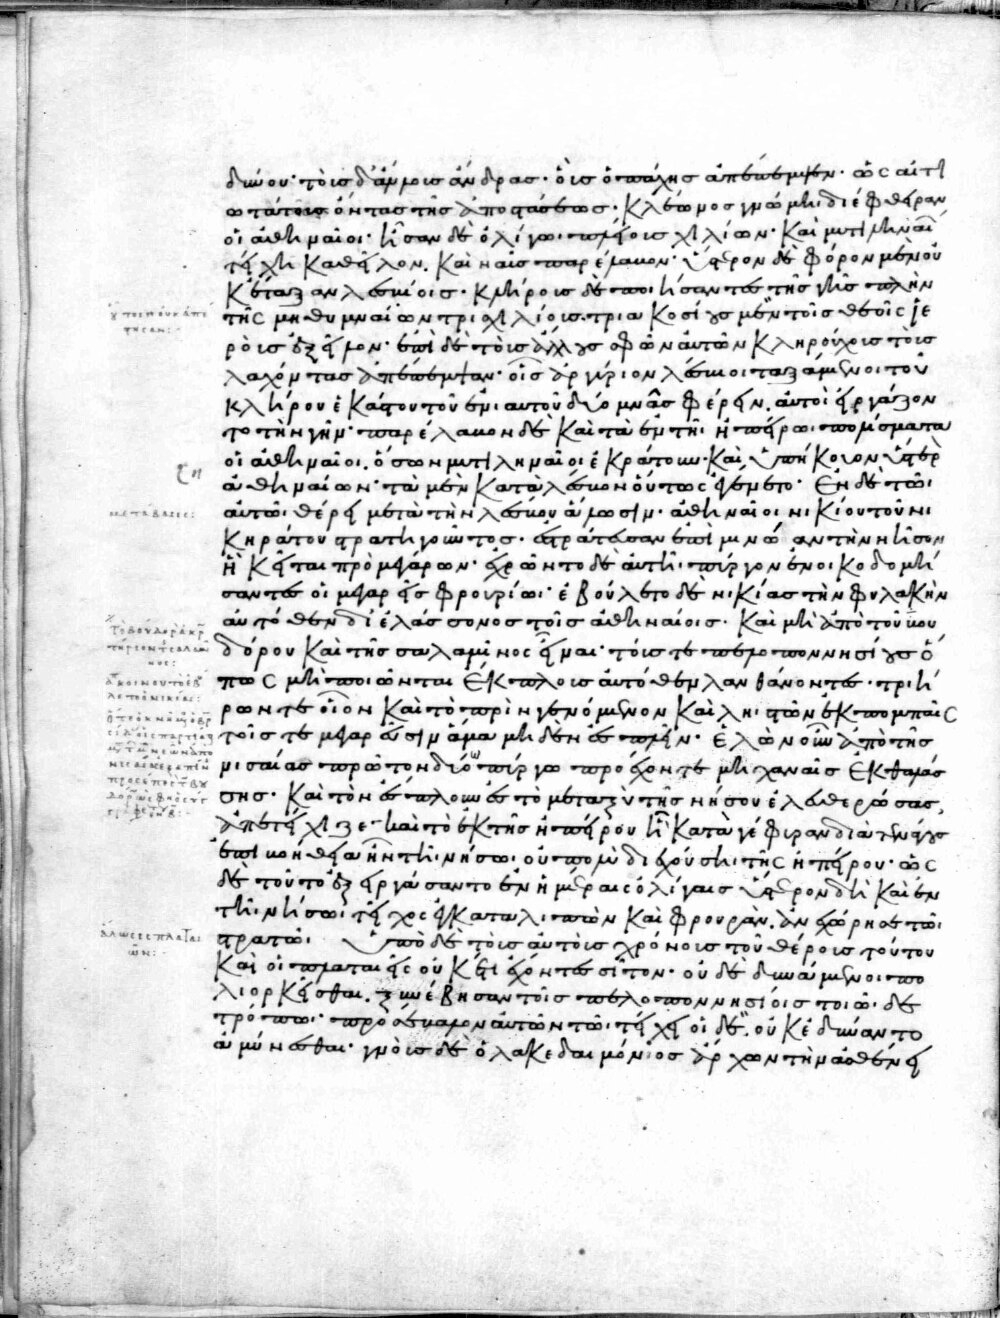 δυνου· τοὺς δ' ἄλλους ἄνδρας· οὓς ὁ πάχης ἀπέπεμψεν· ὡς αἰτι
ωτάτους ὄντας τῆς ἀποστάσεως· Κλέωνος γνώμηι διέφθειραν
οἱ ἀθηναῖοι· ἦσαν δὲ ὀλίγωι πλείους χιλίων· Καὶ μυτιληναί
τείχη Καθεῖλον. Καὶ ναῦς παρέλαβον· ὕστερον δὲ φόρον μὲν οὐ
Κ ἔταξαν λεσβίοις· Κλήρους δὲ ποιήσαντες τῆς γῆς πλὴν
τῆς μηθυμναίων τρισχιλίους· τριακοσίους μὲν τοῖς θεοῖς ἱε
ροὺς ἐξεῖλον· ἐπὶ δὲ τοὺς ἄλλους σφῶν αὐτῶν Κληρούχους τοὺς
λαχόντας ἀπέπεμψαν· οἷς ἀργύριον λέσβιοι ταξάμενοι τοῦ
κλήρου ἑκάστου τοῦ ἐνιαυτοῦ δύο μνᾶς φέρειν. αὐτοὶ εἰργάζον
το τὴν γῆν· παρέλαβον δὲ Καὶ τὰ ἐν τῆι ἠπείρωι πολίσματα
οἱ ἀθηναῖοι. ὅσων μυτιληναῖοι ἐκράτουν· Καὶ ὑπήκουον ὕστερ
ἀθηναίων· τὰ μὲν Κατὰ λέσβον οὕτως ἐγένετο· Ἐν δὲ τῶι
μετάβασις:
αὐτῶι θέρει μετὰ τὴν λέσβου ἅλωσιν· ἀθηναῖοι νικίου τοῦ νι
Κηράτου στρατηγοῦντος· ἐστράτευσαν ἐπὶ μινώαν τὴν νῆσον
ἣ Κεῖται πρὸ μεγάρων· ἐχρῶντο δὲ αὐτῆι· πύργον ἐνοικοδομή
σαντες οἱ μεγαρεῖς φρουρίωι· ἐβούλετο δὲ νικίας τὴν φυλακὴν
αὐτόθεν δι' ἐλάσσονος τοῖς ἀθηναίοις· Καὶ μὴ ἀπὸ τοῦ βου
δόρου Καὶ τῆς σαλαμῖνος εἶναι· τούς τε πελοποννησίους ὅ
πως μὴ ποιῶνται ἔκπλους αὐτόθεν λανθάνοντες· τριή
ρων τε οἷον Καὶ τὸ πρὶν γενόμενον Καὶ ληιστῶν ἐκπομπαῖς
τοῖς τε μεγαρεῦσιν ἅμα μηδὲν ἐσπλεῖν· Ἑλὼν οὖν ἀπὸ τῆς
νισαίας πρῶτον δύο πύργω προέχοντε μηχαναῖς ἐκ θαλάσ
σης· Καὶ τὸν ἔσπλουν ἐς τὸ μεταξὺ τῆς νήσου ἐλευθερώσας,
ἀπετείχιζε· καὶ τὸ ἐκ τῆς ἠπείρου ἧι Κατὰ γέφυραν διὰ τενάγους
ἐπιβοήθεια ἦν τῆι νήσωι οὐ πολὺ διεχούσηι τῆς ἠπείρου· ὡς
δὲ τοῦτο ἐξειργάσαντο ἐν ἡμέραις ὀλίγαις ὕστερον δὴ Καὶ ἐν
τῆι νήσωι τεῖχος ἐγκαταλιπὼν Καὶ φρουρὰν. ἀνεχώρησε τῶι
στρατῶι· Ὑπὸ δὲ τοὺς αὐτοὺς χρόνους τοῦ θέρους τούτου
Καὶ οἱ πλαταιεῖς οὐκέτι ἔχοντες σῖτον· οὐδὲ δυνάμενοι πο
λιορκεῖσθαι. ξυνέβησαν τοῖς πελοποννησίοις τοιῶι δε
τρόπωι· προσέβαλλον αὐτῶν τῶι τείχει οἱ δὲ οὐκ ἐδύναντο
ἀμύνεσθαι· γνοὺς δὲ ὁ λακεδαιμόνιος ἄρχων τὴν ἀσθένει